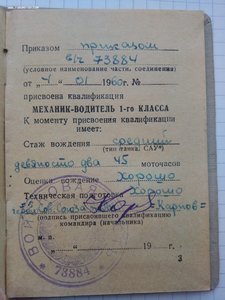 Приказом приказом
в/ч 73884
(условное наименование части, соединения)
от „4" 01 1960 г.
присвоена квалификация
МЕХАНИК-ВОДИТЕЛЬ 1-го КЛАССА
К моменту присвоения квалификации
имеет:
Стаж вождения средний
(тип танка, САУ)
девяносто два 45 моточасов
Оценка вождения хорошо
Техническая подготовка хорошо
Карпов
(подпись присвоившего квалификацию
командира (начальника)
м. п. „ " 19 г.
73884
3